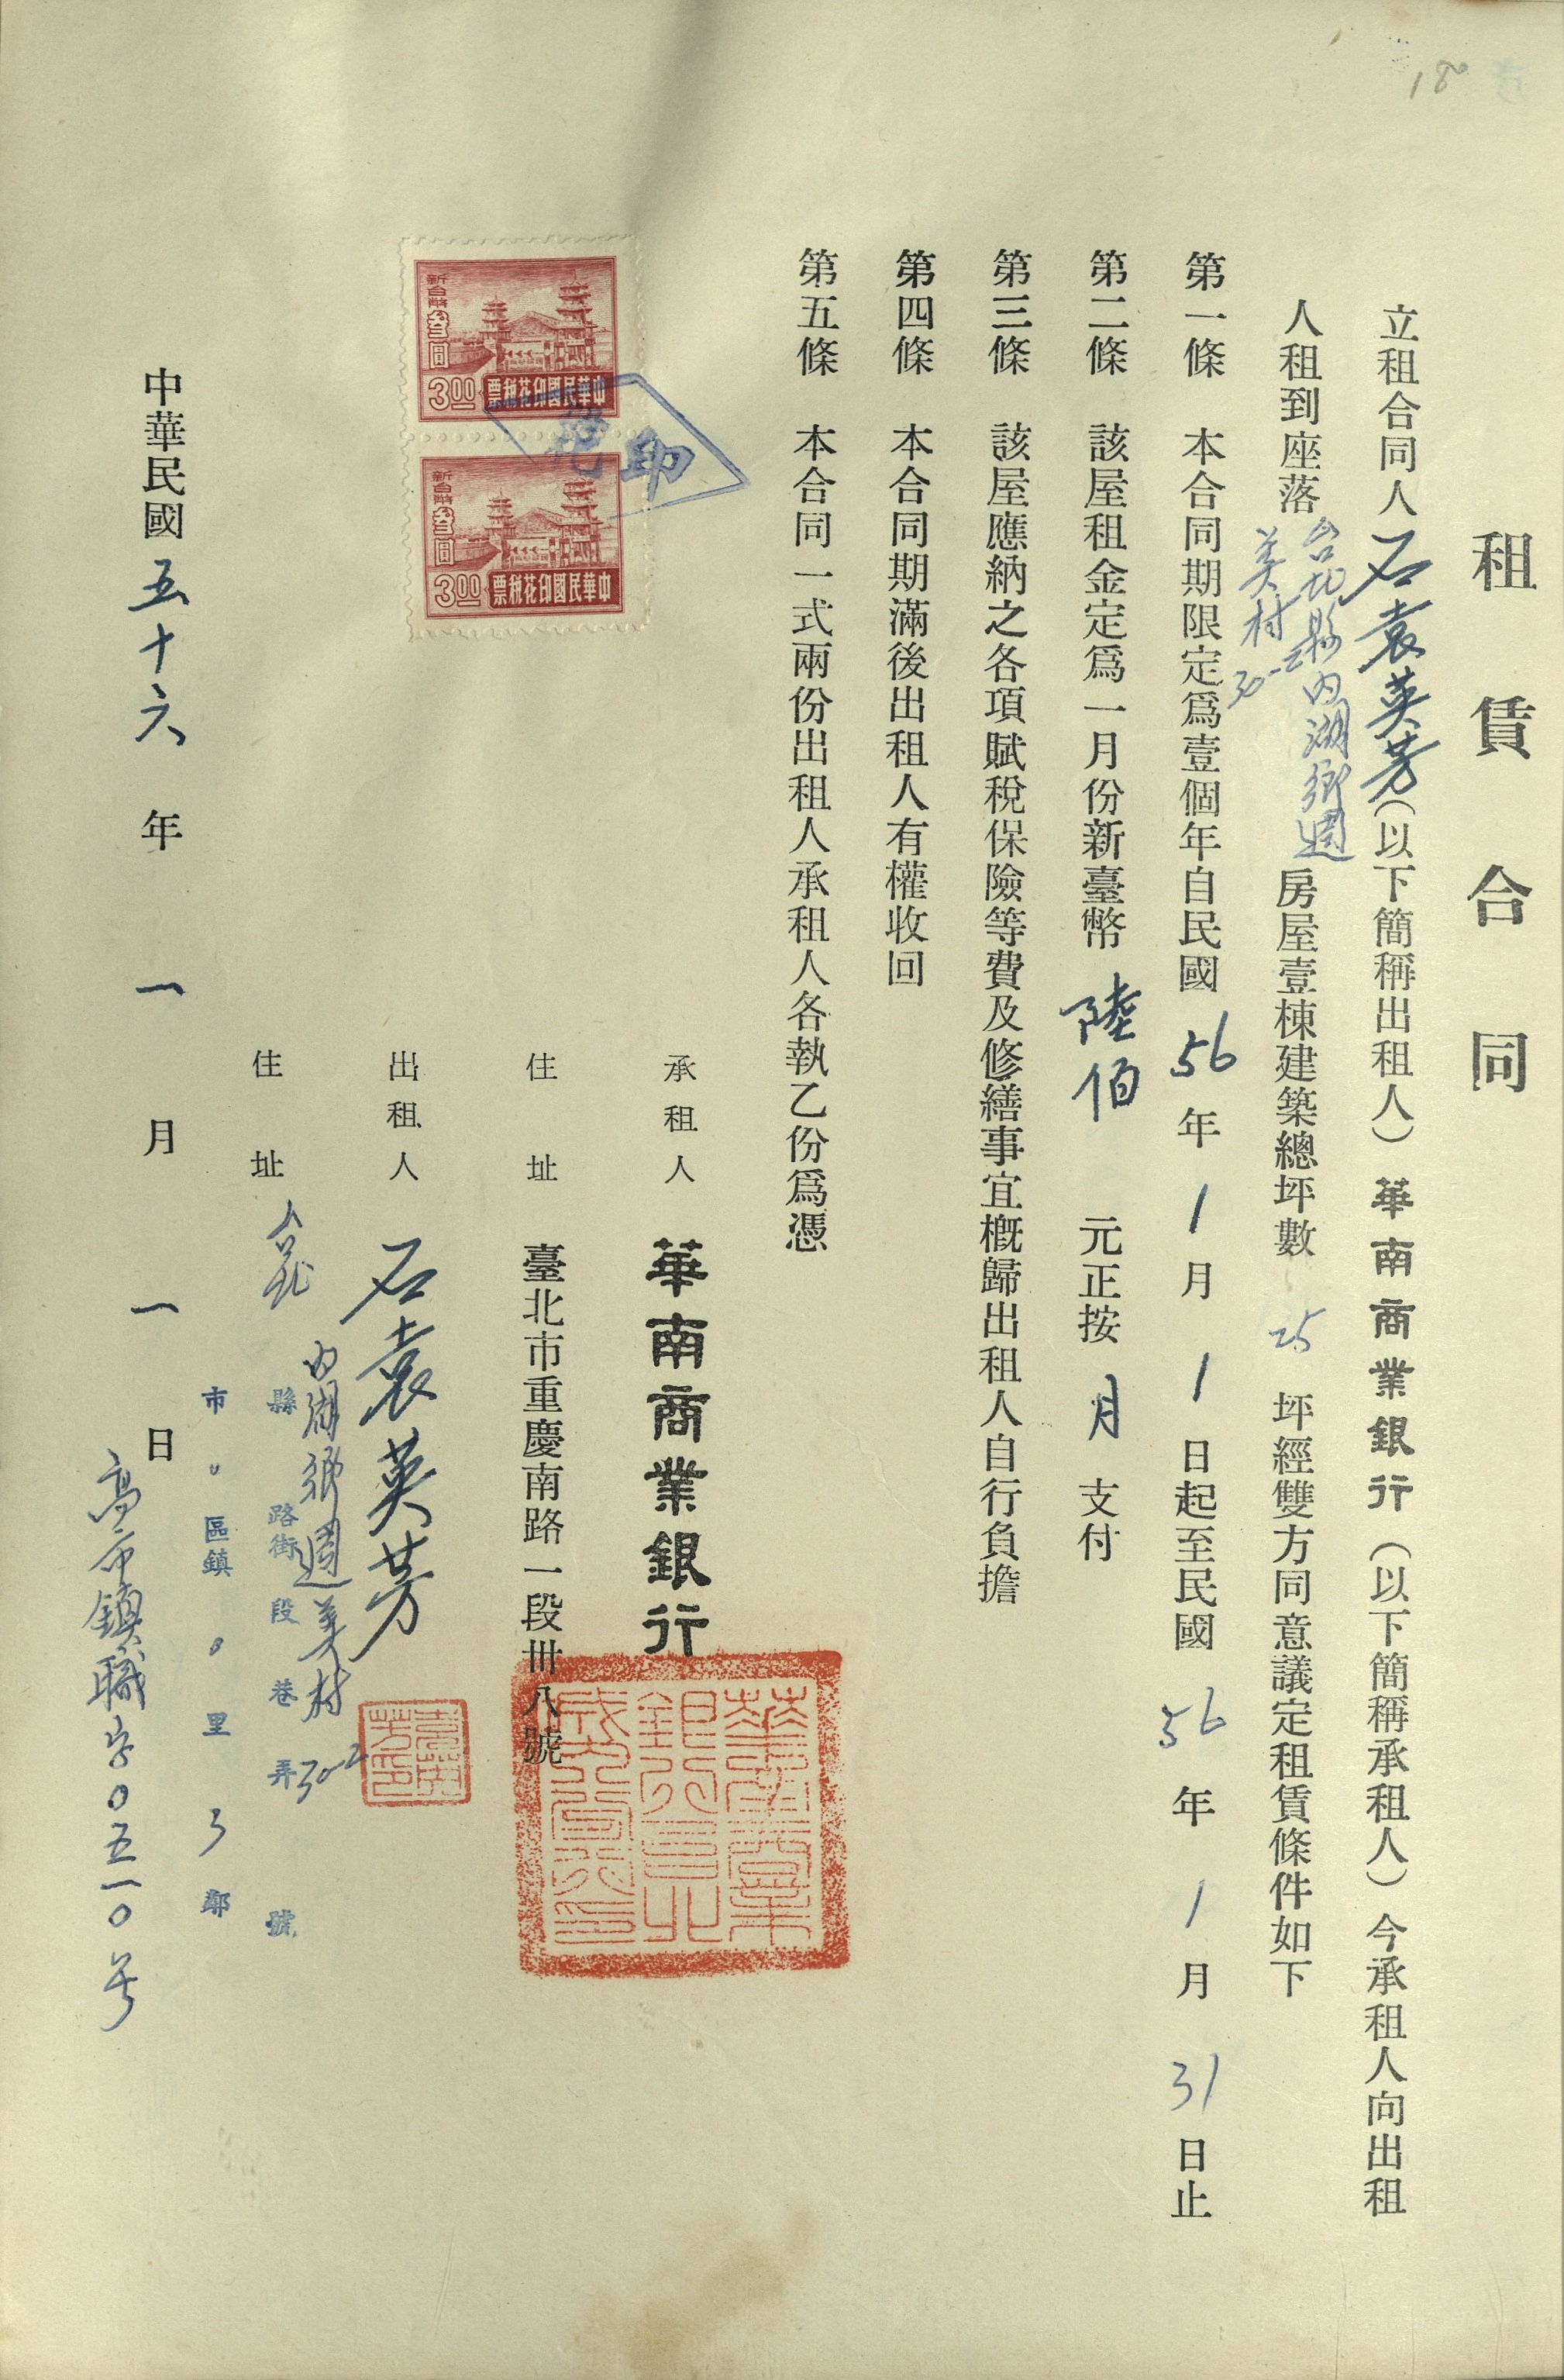 180
租賃合同
立租合同人石袁英芳（以下簡稱出租人）華南商業銀行（以下簡稱承租人）今承租人向出租
人租到座落台北縣內湖鄉週美村30-2房屋壹棟建築總坪數25坪經雙方同意議定租賃條件如下
第一條　本合同期限定爲壹個年自民國56年1月1日起至民國56年1月31日止
第二條　該屋租金定爲一月份新臺幣陸佰元正按月支付
第三條　該屋應納之各項賦稅保險等費及修繕事宜概歸出租人自行負擔
第四條　本合同期滿後出租人有權收回
第五條　本合同一式兩份出租人承租人各執乙份爲憑
新台幣叁圓
3.00
票稅花印國民華中
新台幣叁圓
3.00
票稅花印國民華中
印花
承租人　華南商業銀行
住址　臺北市重慶南路一段卅八號
出租人　石袁英芳
袁英芳印
住址　台北縣內湖鄉週美村30-2
路街　段　巷　弄　號
市　區鎮　里　鄰
中華民國五十六年一月一日
字0五一0号